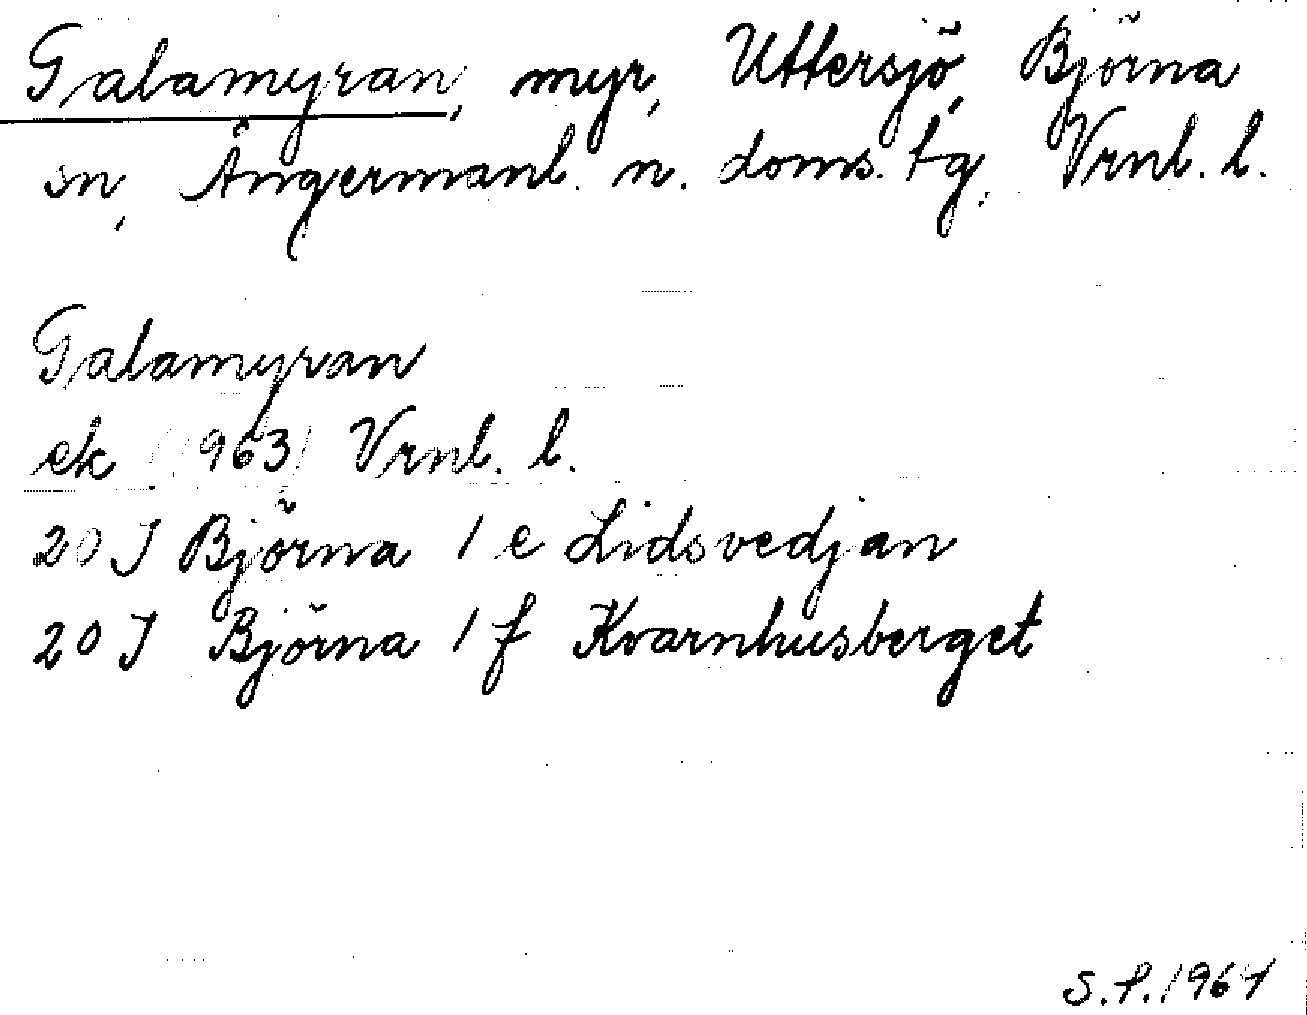 Galamyran, myr, Uttersjö, Björna
sn, Ångermanl. n. doms. tg, Vrnl. l.
Galamyran
ek (1963) Vrnl. l.
20 J Björna 1 e Lidsvedjan
20 J Björna 1 f Kvarnhusberget
S.P. 1964